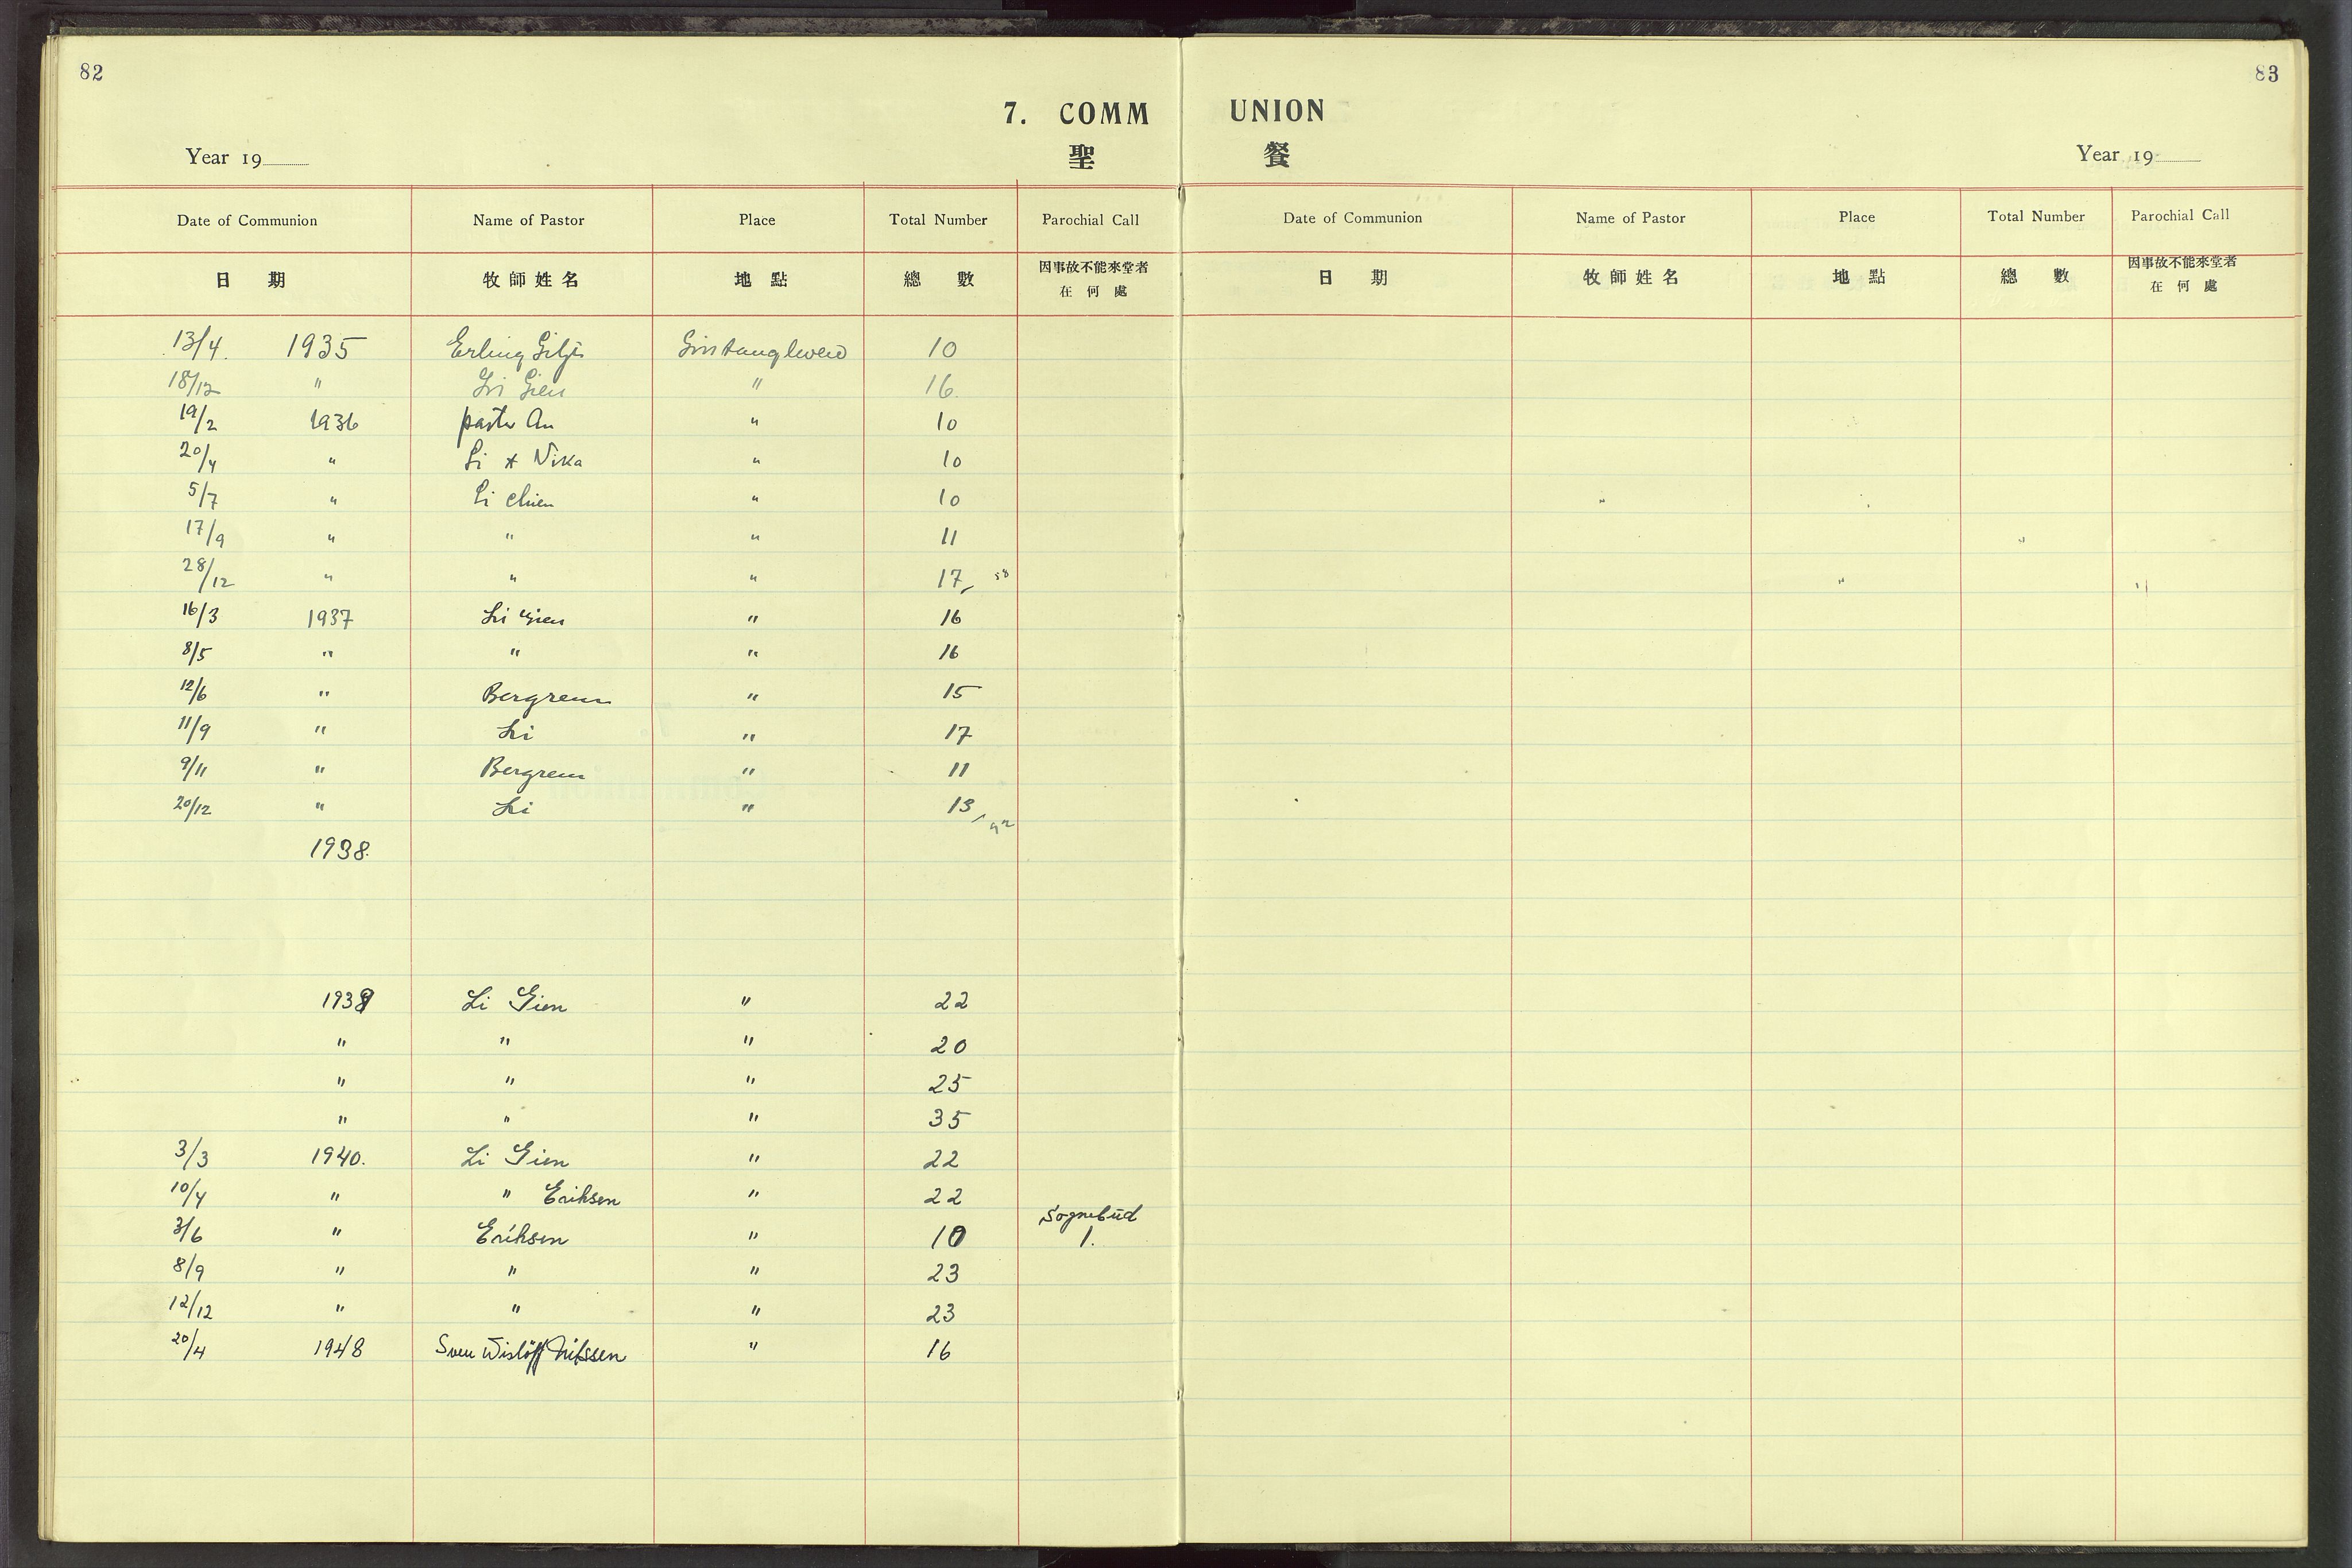 82
83
7. COMM UNION
聖 餐
Year 19
Year 19
Date of Communion Name of Pastor Place Total Number Parochial Call Date of Communion Name of Pastor Place Total Number Parochial Call
日 期 牧師姓名 地點 總數 因事故不能來堂者 在何處 日 期 牧師姓名 地點 總數 因事故不能來堂者 在何處
13/4. 1935 Erling Gilje 10
18/12 " Li Gien " 16.
19/2 1936 pastor An " 10
20/4 " Li + Nika " 10
5/7 " Li chien " 10
17/9 " " " 11
28/12 " " " 17, 58
16/3 1937 Li Gien " 16
8/5 " " " 16
12/6 " Bergrem " 15
11/9 " Li " 17
9/11 " Bergrem " 11
20/12 " Li " 13,
1938.
1939 Li Gien " 22
" " " 20
" " " 25
" " " 35
3/3 1940. Li Gien " 22
10/4 " " Eriksen " 22
3/6 " Eriksen " 10 Sognebud 1.
8/9 " " " 23
12/12 " " " 23
20/4 1948 Sven Wislöff Nilssen " 16